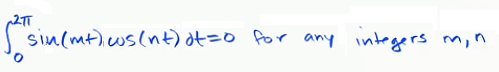 ∫₀^2π sin(mt) cos(nt) dt = 0 for any integers m, n